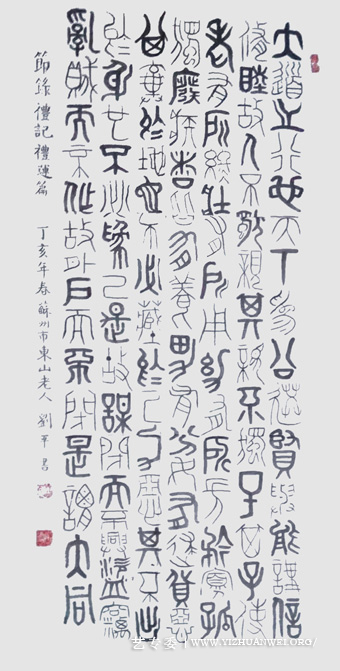 大道之行也天下為公選賢與能講信
修睦故人不獨親其親不獨子其子使
老有所終壯有所用幼有所長矜寡孤
獨廢疾者皆有養男有分女有歸貨惡
其棄於地也不必藏於己力惡其不出
於身也不必為己是故謀閉而不興盜竊
亂賊而不作故外戶而不閉是謂大同
節錄禮記禮運篇 丁亥年春蘇州市東山老人劉
艺专委 WWW.YIZHUANWEI.ORG/